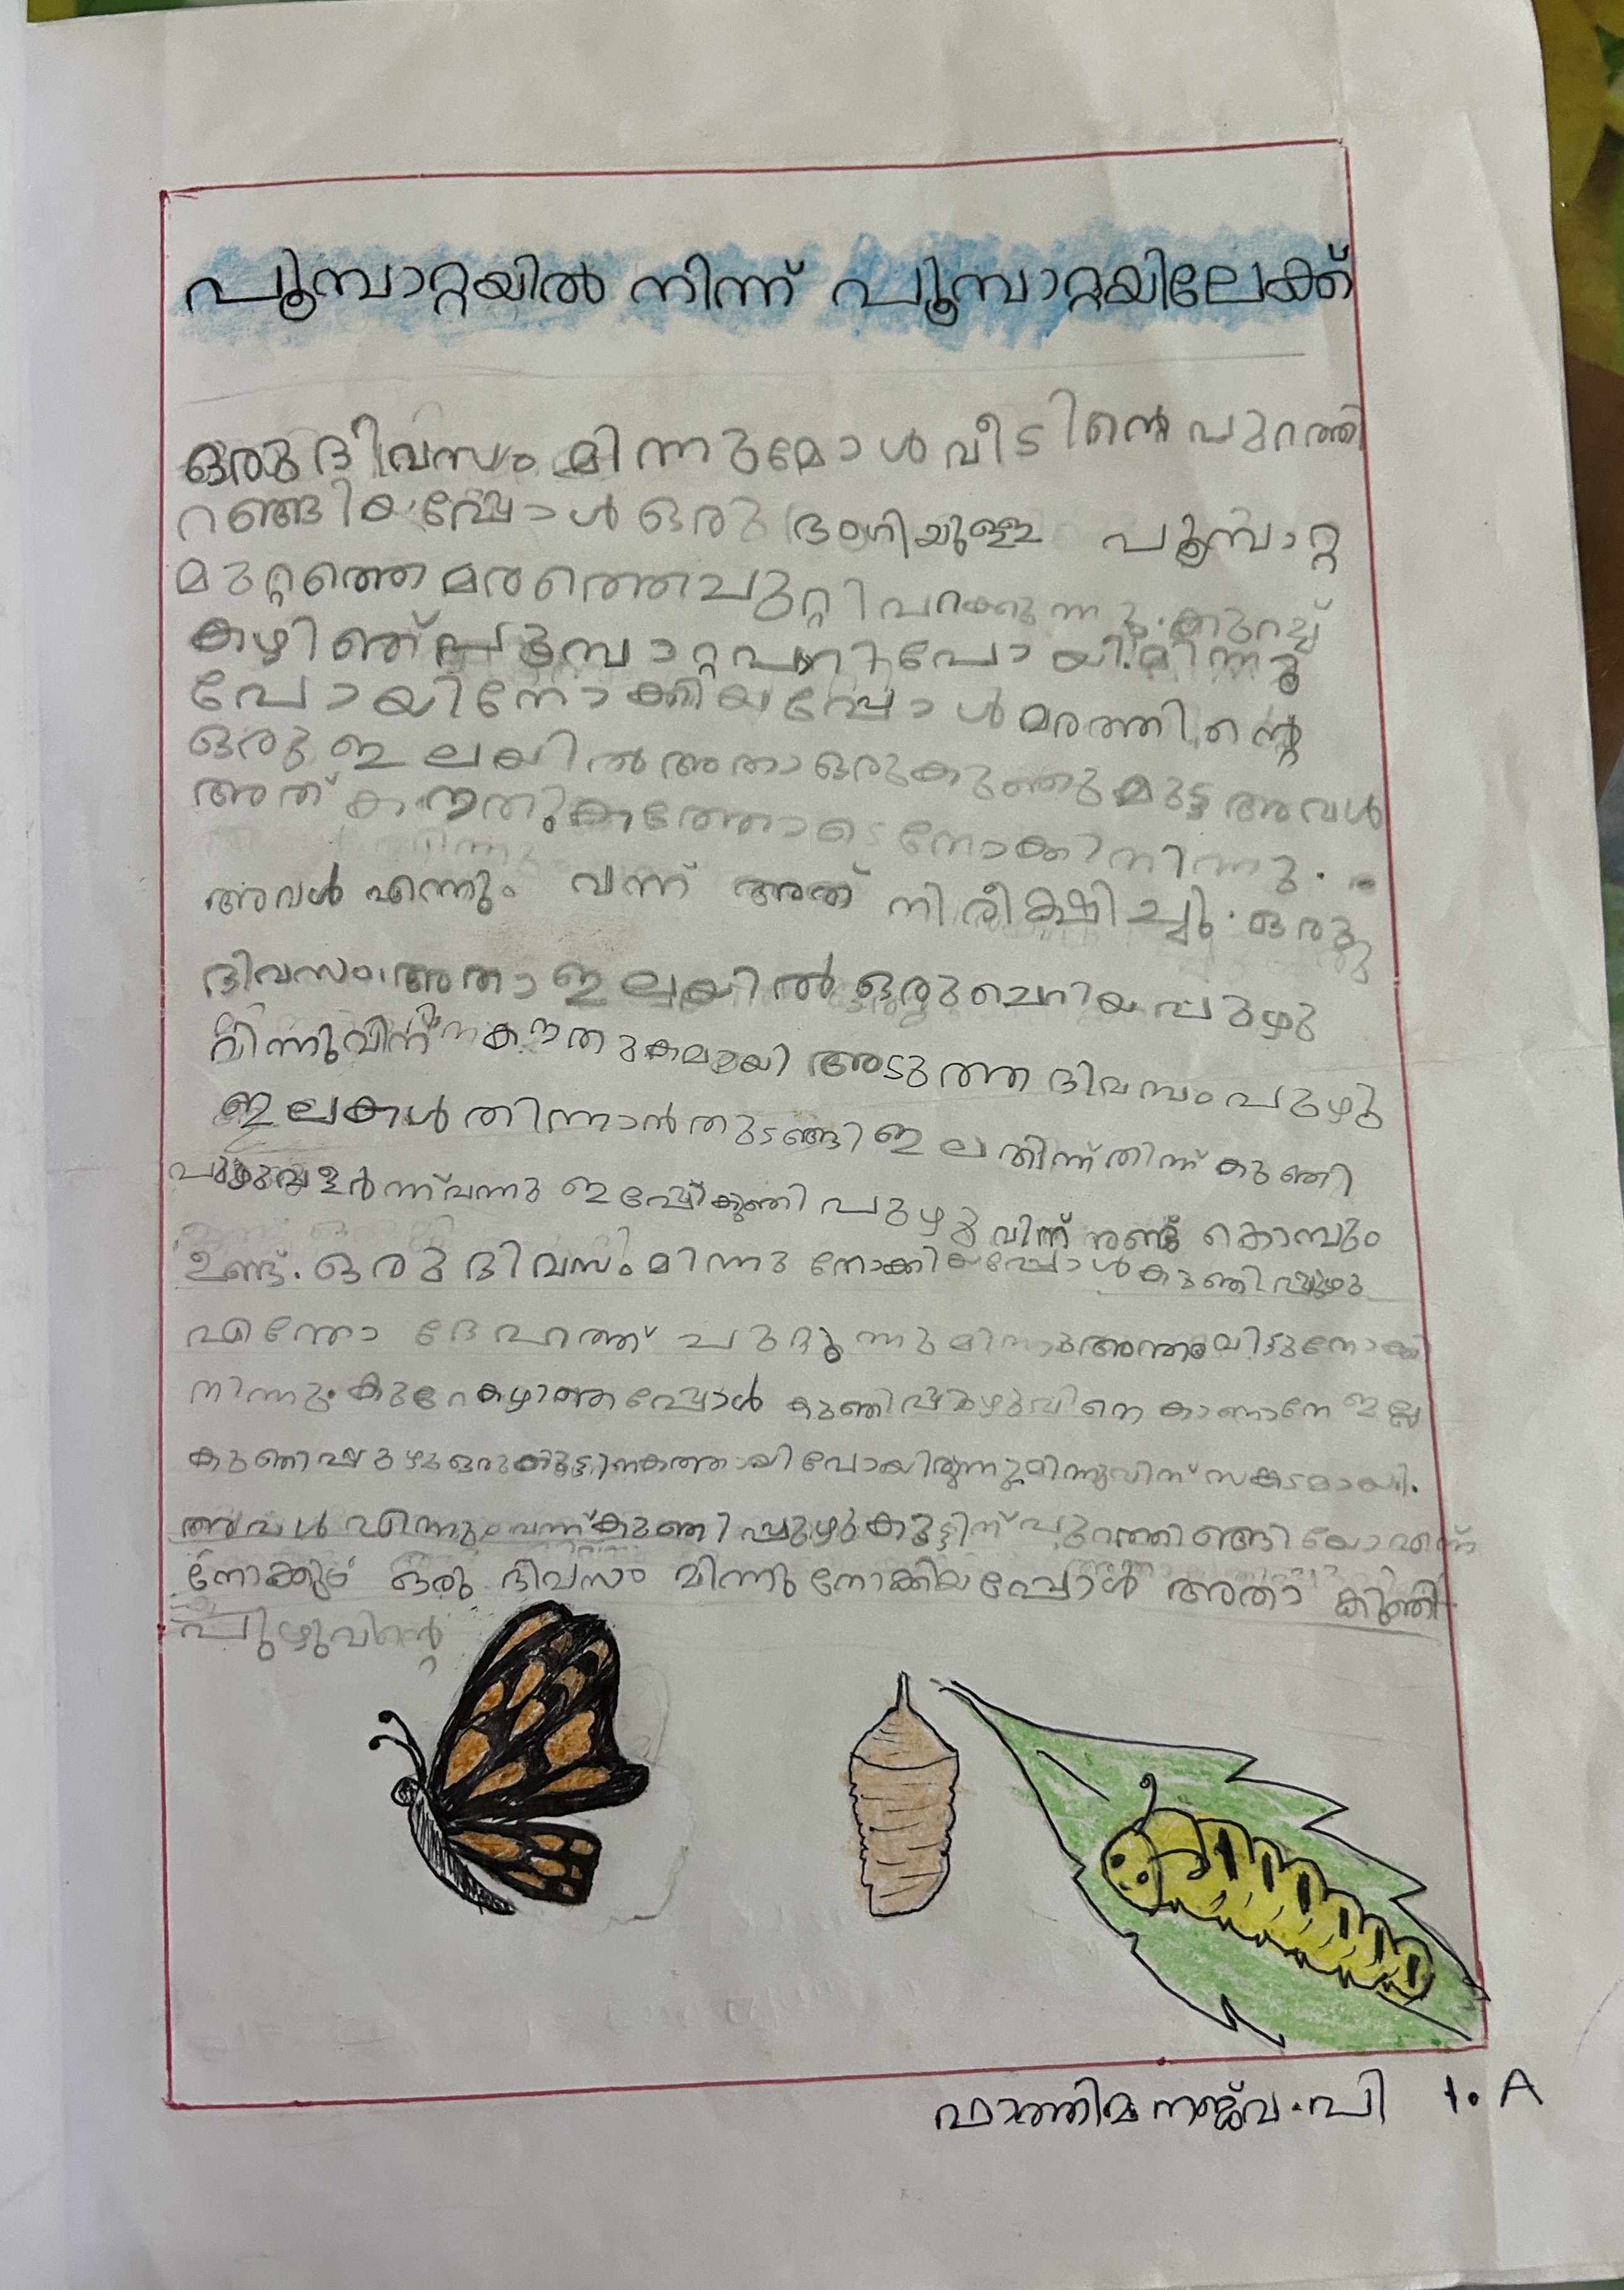 പൂമ്പാറ്റയിൽ നിന്ന് പൂമ്പാറ്റയിലേക്ക്
ഒരു ദിവസം മിന്നുമോൾ വീടിന്റെ പുറത്തി
റങ്ങിയപ്പോൾ ഒരു ഭംഗിയുള്ള പൂമ്പാറ്റ
മുറ്റത്തെ മരത്തെ ചുറ്റി പറക്കുന്നു. കുറച്ച്
കഴിഞ്ഞ് പൂമ്പാറ്റ പറന്നു പോയി. മിന്നു
പോയി നോക്കിയപ്പോൾ മരത്തിന്റെ
ഒരു ഇലയിൽ അതാ ഒരു കുഞ്ഞു മുട്ട അവൾ
അത് കൗതുകത്തോടെ നോക്കിനിന്നു.
അവൾ എന്നും വന്ന് അത് നിരീക്ഷിച്ചു. ഒരു
ദിവസം അതാ ഇലയിൽ ഒരു ചെറിയ പുഴു
മിന്നുവിന് കൗതുകമായി അടുത്ത ദിവസം പുഴു
ഇലകൾ തിന്നാൻ തുടങ്ങി ഇല തിന്ന് തിന്ന് കുഞ്ഞി
പുഴു വളർന്ന് വന്നു ഇപ്പോ കുഞ്ഞി പുഴുവിന് രണ്ട് കൊമ്പും
ഉണ്ട്. ഒരു ദിവസം മിന്നു നോക്കിയപ്പോൾ കുഞ്ഞിപ്പുഴു
എന്തോ ദേഹത്ത് ചുറ്റുന്നു മിന്നു അന്തംവിട്ടു നോക്കി
നിന്നു. കുറേ കഴിഞ്ഞപ്പോൾ കുഞ്ഞിപ്പുഴുവിനെ കാണാനേ ഇല്ല
കുഞ്ഞിപ്പുഴു ഒരു കൂട്ടിനകത്തായി പോയിരുന്നു മിന്നുവിന് സങ്കടമായി.
അവൾ എന്നും വന്ന് കുഞ്ഞിപ്പുഴു കൂട്ടിന് പുറത്തിറങ്ങിയോ എന്ന്
നോക്കും ഒരു ദിവസം മിന്നു നോക്കിയപ്പോൾ അതാ കുഞ്ഞി
പുഴുവിന്റെ
ഫാത്തിമ നജ്‌വ.പി 1. A